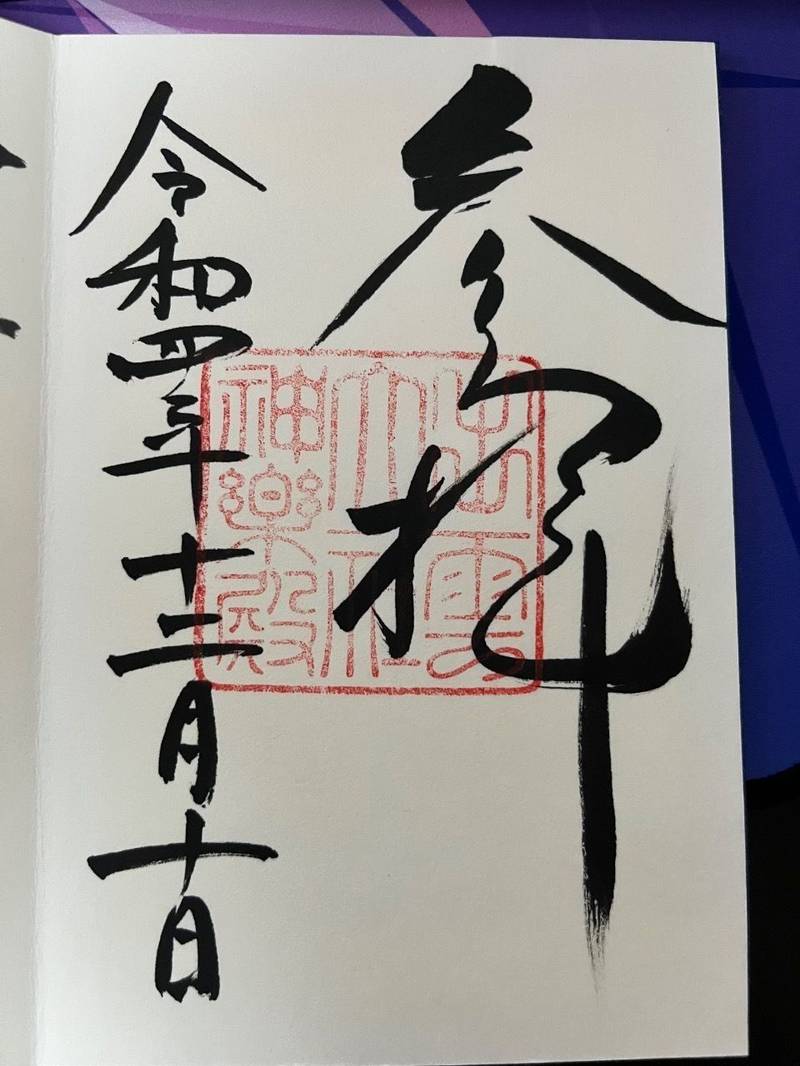 参拝
出雲
大社
神楽殿
令和四年十二月十日